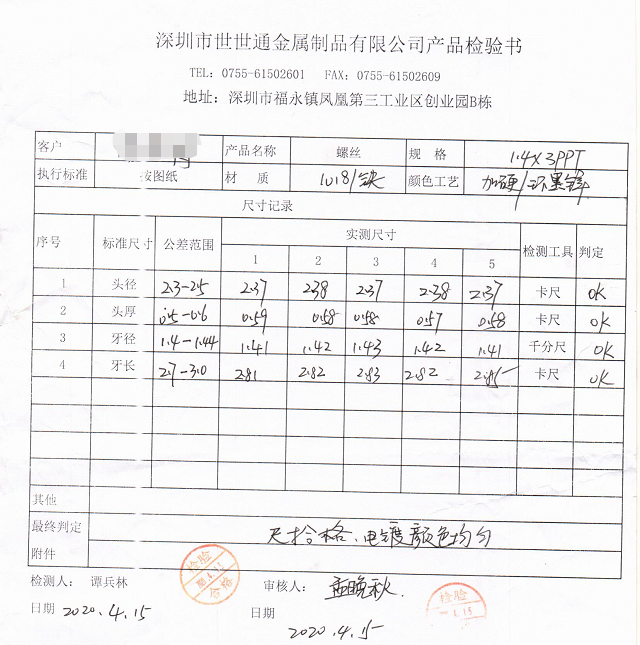 深圳市世世通金属制品有限公司产品检验书
TEL: 0755-61502601 FAX: 0755-61502609
地址: 深圳市福永镇凤凰第三工业区创业园B栋
客户 产品名称 螺丝 规 格 1.4×3PPT
执行标准 按图纸 材 质 1018/铁 颜色工艺 加硬/环黑锌
尺寸记录
序号 标准尺寸 公差范围 实测尺寸 检测工具 判定
1 2 3 4 5
1 头径 2.3-2.5 2.37 2.38 2.37 2.38 2.37 卡尺 OK
2 头厚 0.5-0.6 0.59 0.58 0.58 0.57 0.58 卡尺 OK
3 牙径 1.4-1.44 1.41 1.42 1.43 1.42 1.41 千分尺 OK
4 牙长 2.7-3.0 2.81 2.82 2.83 2.82 2.85 卡尺 OK
其他
最终判定 尺寸合格、电镀颜色均匀
附件
检测人: 谭兵林 检验 合格 审核人: 孟晚秋 检验
日期 2020.4.15 日期
2020.4.15